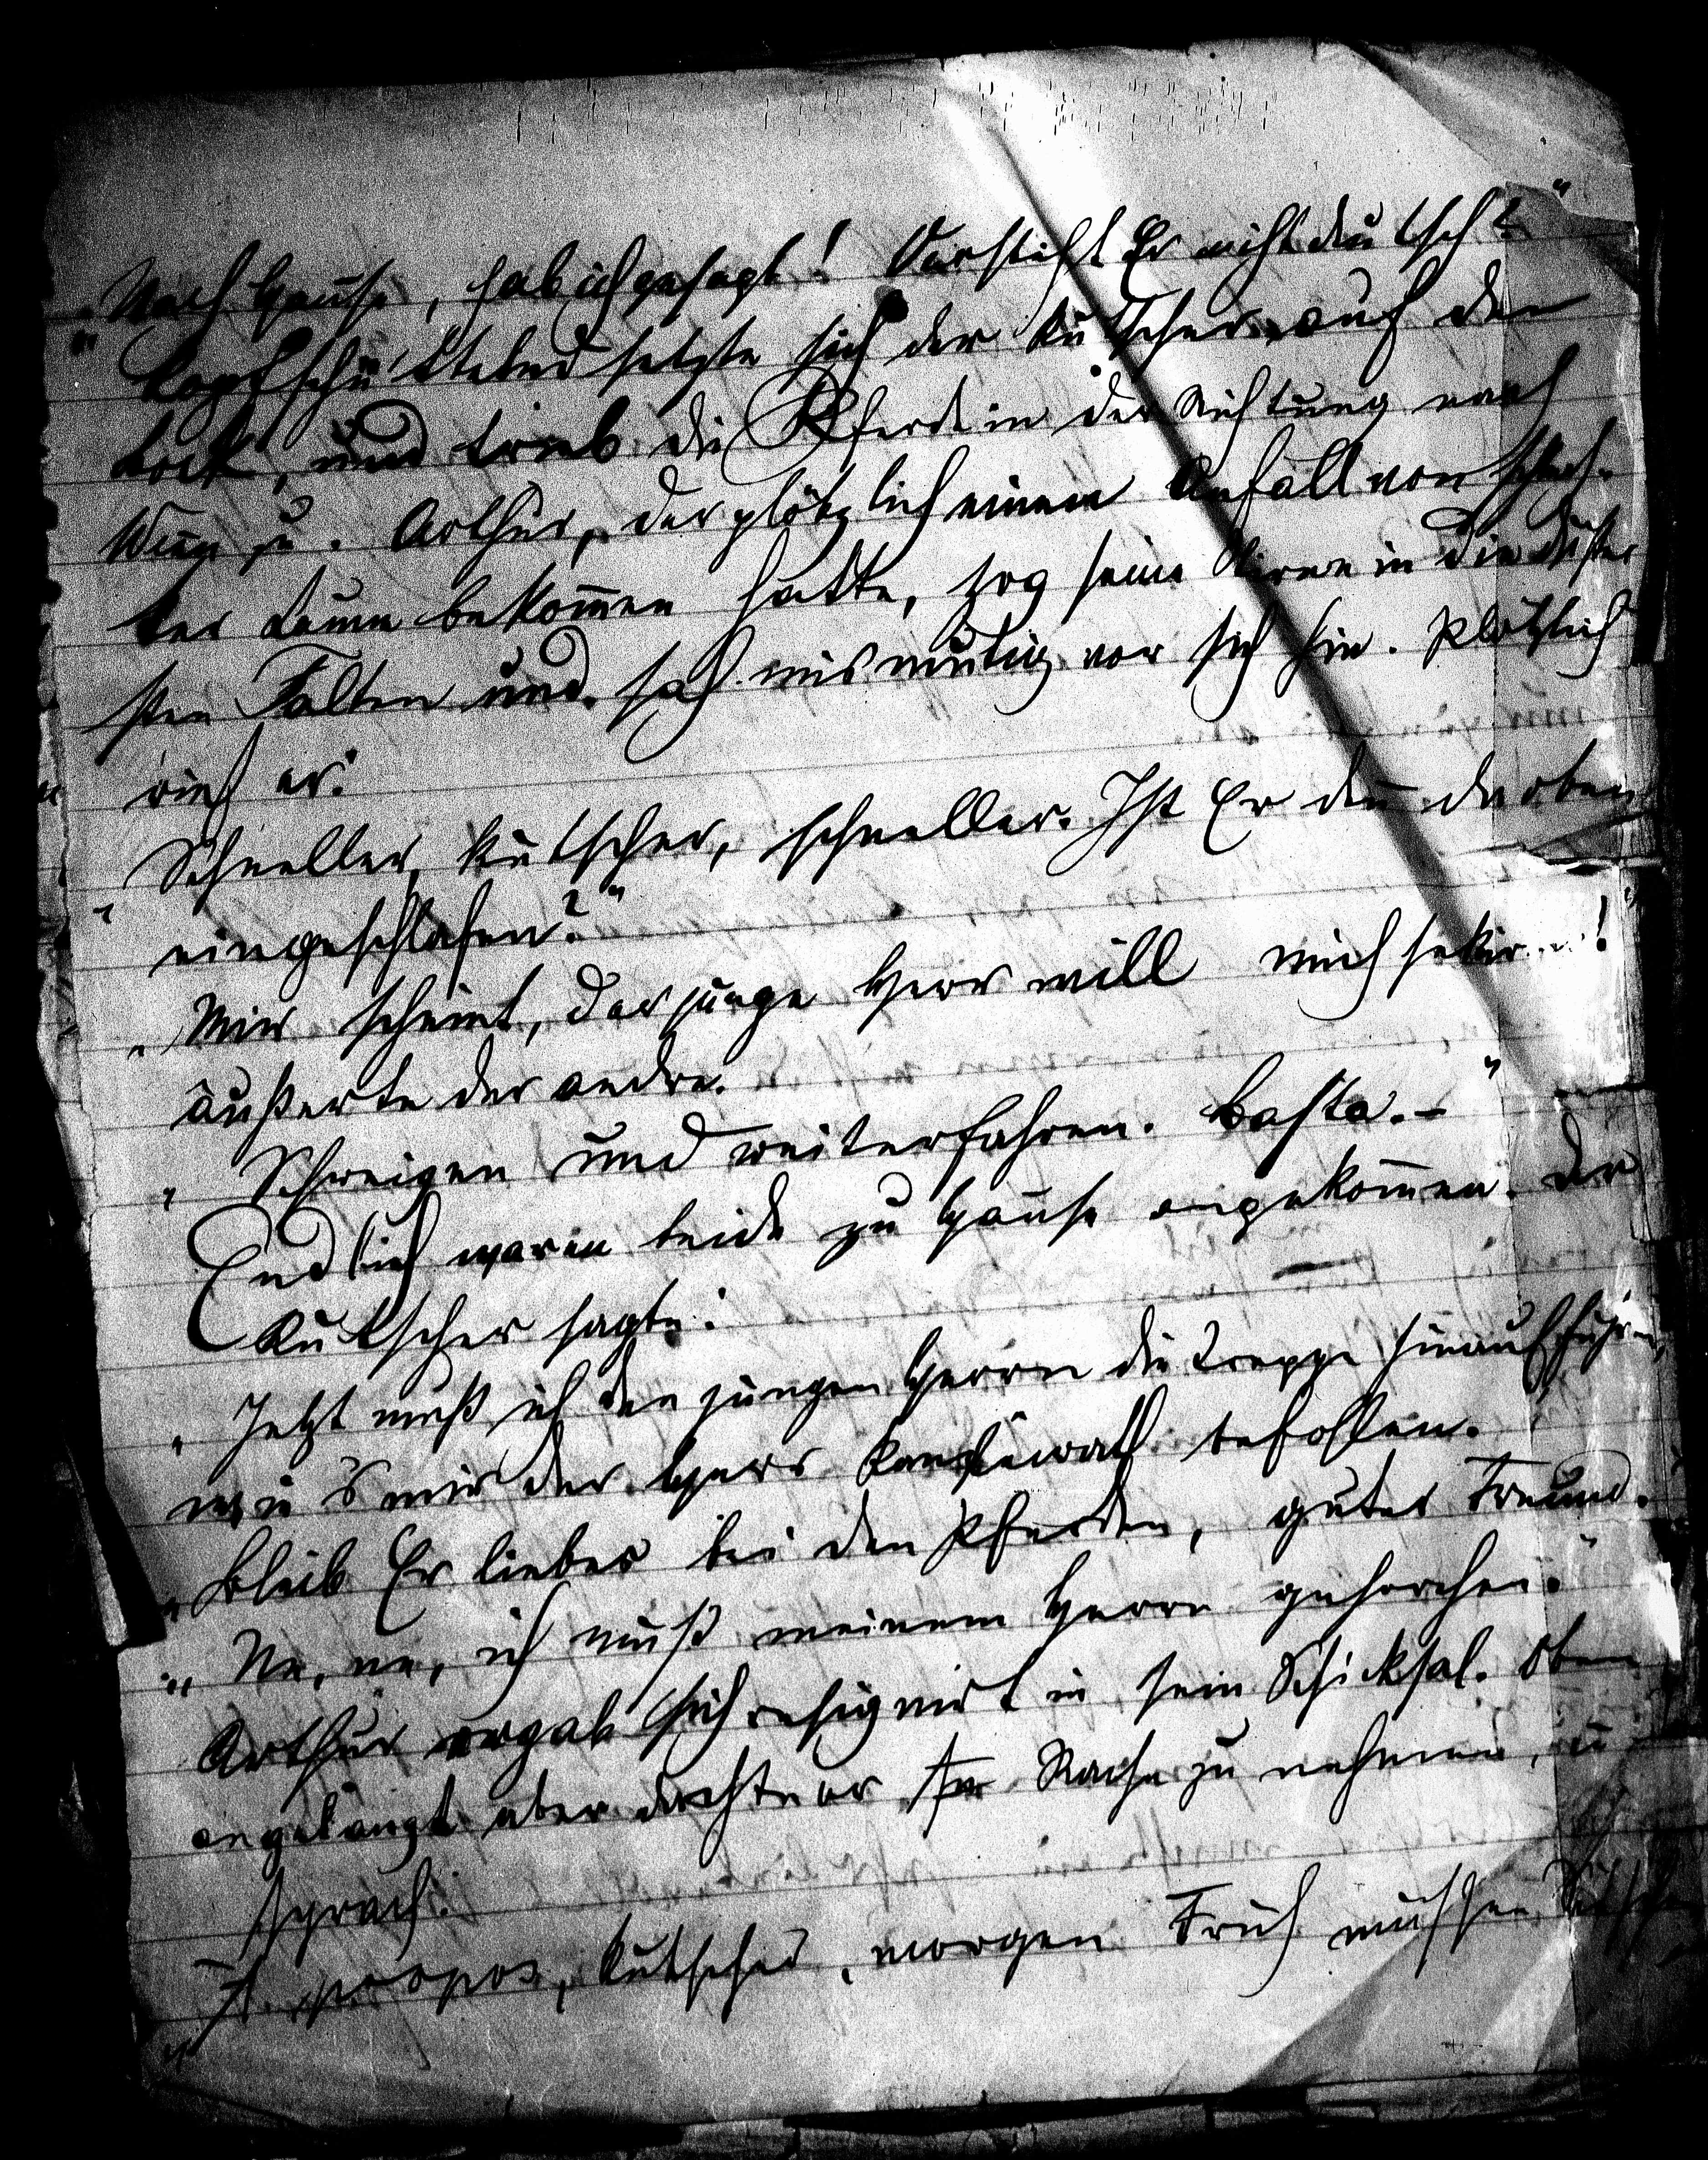 „Nach Hause, hab ich gesagt! Versteht Er nicht deutsch?“
Kopfschüttelnd setzte sich der Kutscher auf den
Bock, und trieb die Pferde in der Richtung nach
Wien zu. Arthur, der plötzlich einen Anfall von schlech-
ter Laune bekom̄en hatte, zog seine Stirne in die düster
sten Falten und sah mismutig vor sich hin. Plötzlich
rief er:
„Schneller, Kutscher, schneller. Ist Er den̄ da oben
eingeschlafen?“
„Mir scheint, der junge Herr will mich sekir...!“
äußerte der andre.
„Schweigen und weiterfahren. Basta.–“
Endlich waren beide zu Hause angekom̄en. Der
Kutscher sagte:
„Jetzt muß ich den jungen Herrn die Treppe hinaufführen,
wie's mir der Herr befohlen.
„Bleib Er lieber bei den Pferden, guter Freund.
„Ne, ne, ich muß meinem Herrn gehorchen.“
Arthur ergab sich resignirt in sein Schicksal. Oben
angelangt aber dachte er Rache zu nehmen, u
sprach:
„A propos, Kutscher, morgen Früh müssen